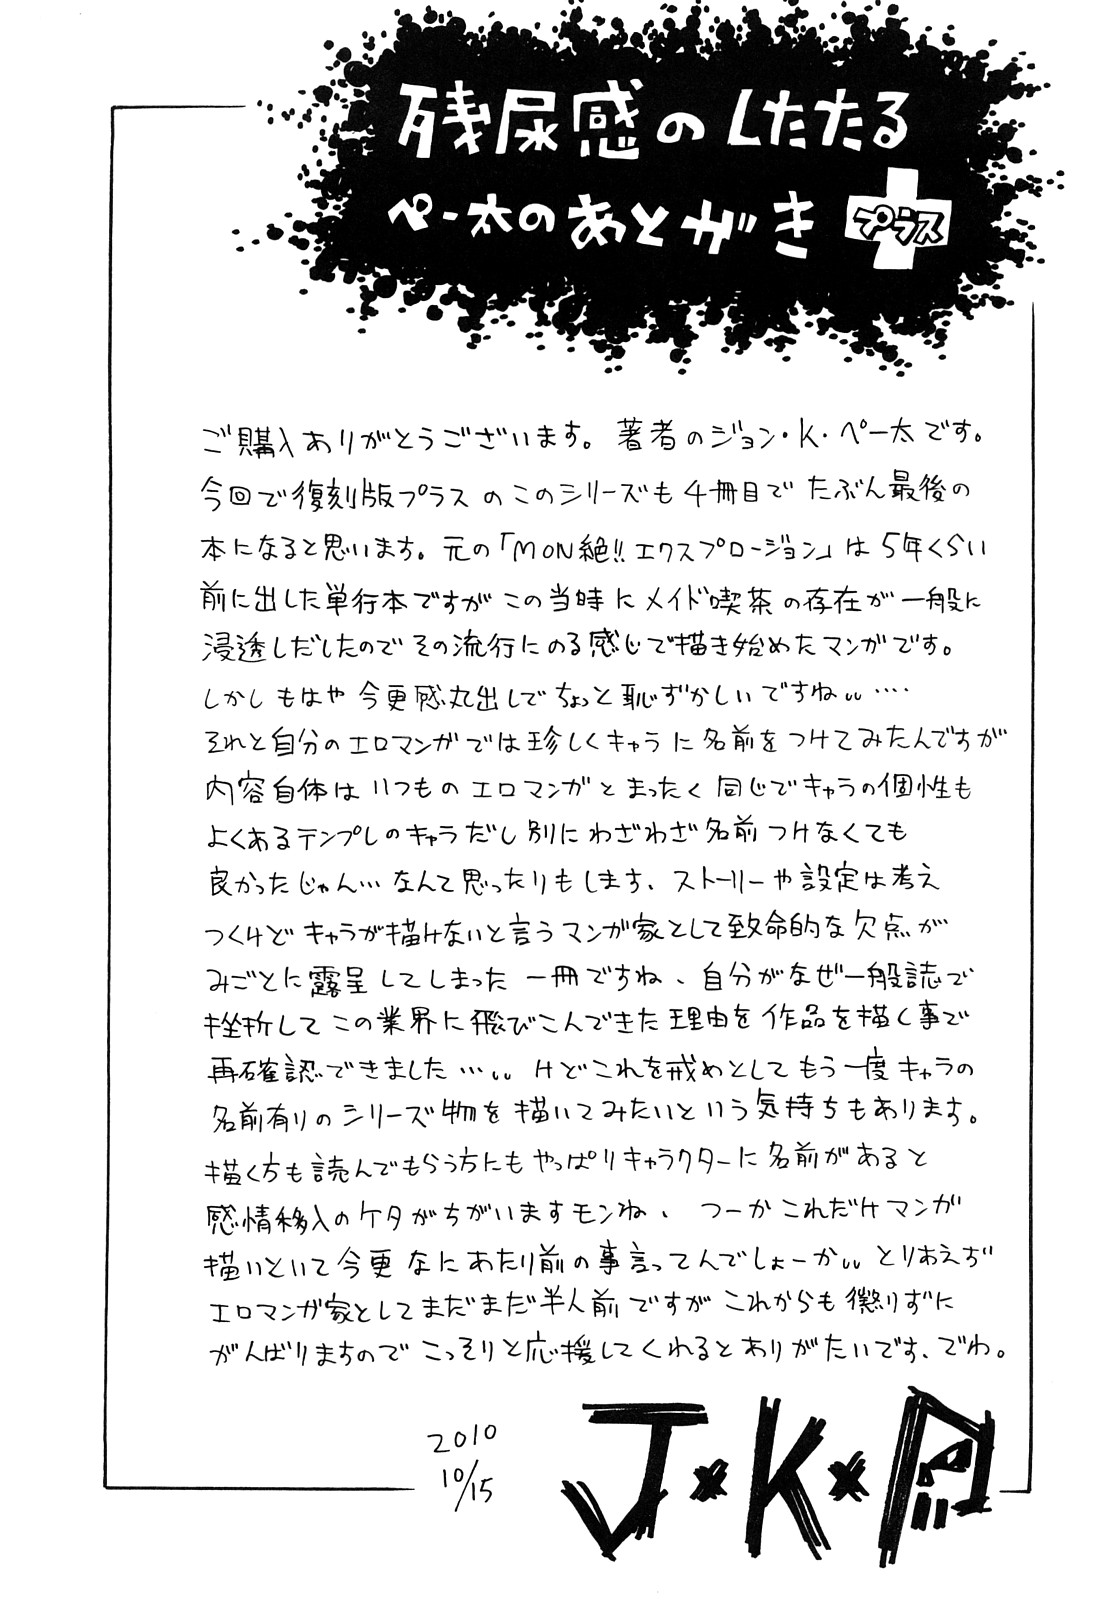 残尿感のしたたる
ペー太のあとがき プラス
ご購入ありがとうございます。著者のジョン・K・ペー太です。
今回で復刻版プラスのこのシリーズも4冊目でたぶん最後の
本になると思います。元の「MON絶!! エクスプロージョン」は5年くらい
前に出した単行本ですがこの当時にメイド喫茶の存在が一般に
浸透しだしたのでその流行にのる感じで描き始めたマンガです。
しかしもはや今更感丸出しでちょっと恥ずかしいですね‥‥‥
それと自分のエロマンガでは珍しくキャラに名前をつけてみたんですが
内容自体はいつものエロマンガとまったく同じでキャラの個性も
よくあるテンプレのキャラだし別にわざわざ名前つけなくても
良かったじゃん…なんて思ったりもします、ストーリーや設定は考え
つくけどキャラが描けないと言うマンガ家として致命的な欠点が
みごとに露呈してしまった一冊ですね、自分がなぜ一般誌で
挫折してこの業界に飛びこんできた理由を作品を描く事で
再確認できました…‥けどこれを戒めとしてもう一度キャラの
名前有りのシリーズ物を描いてみたいという気持ちもあります。
描く方も読んでもらう方にもやっぱりキャラクターに名前があると
感情移入のケタがちがいますモンね、つーかこれだけマンガ
描いといて今更なにあたり前の事言ってんでしょーか‥とりあえず
エロマンガ家としてまだまだ半人前ですがこれからも懲りずに
がんばりますのでこっそりと応援してくれるとありがたいです、でわ。
2010
10/15
J・K・P